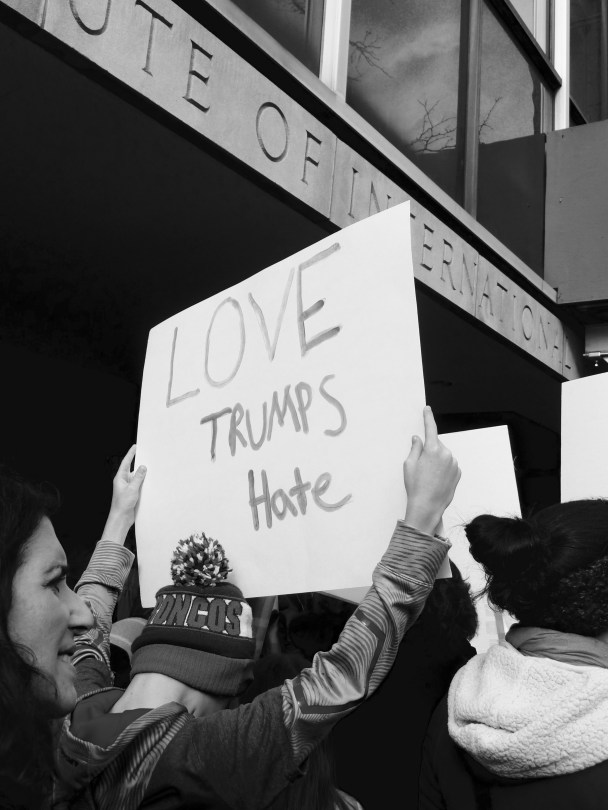 UTE OF INTERNATIONAL
LOVE
TRUMPS
Hate
RONCOS